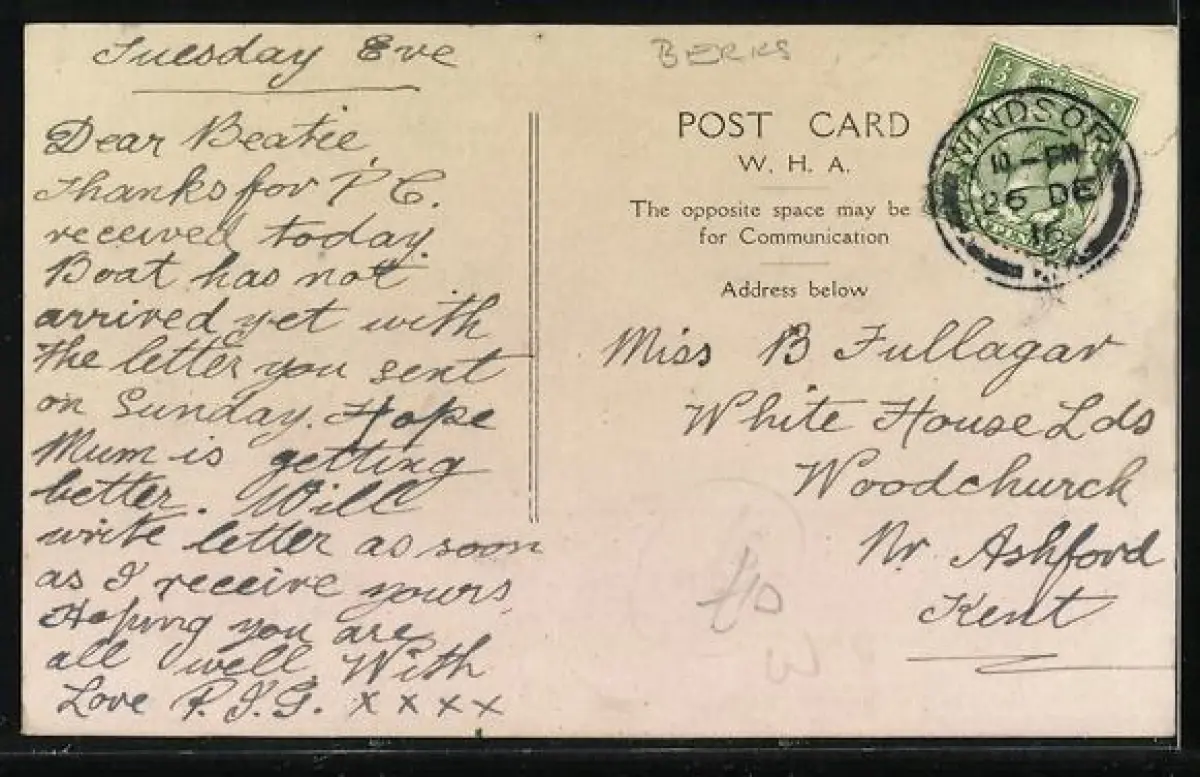 Tuesday Eve
Dear Beatie,
Thanks for P.C.
received today.
Boat has not
arrived yet with
the letter you sent
on Sunday. Hope
Mum is getting
better. Will
write letter as soon
as I receive yours,
Hoping you are
all well. With
Love P.I.G. x x x x
BERKS
POST CARD
W. H. A.
The opposite space may be
for Communication
Address below
½
WINDSOR
26 DE
16
Miss B Fullagar
White House Lds
Woodchurch
Nr Ashford
Kent
£10
W